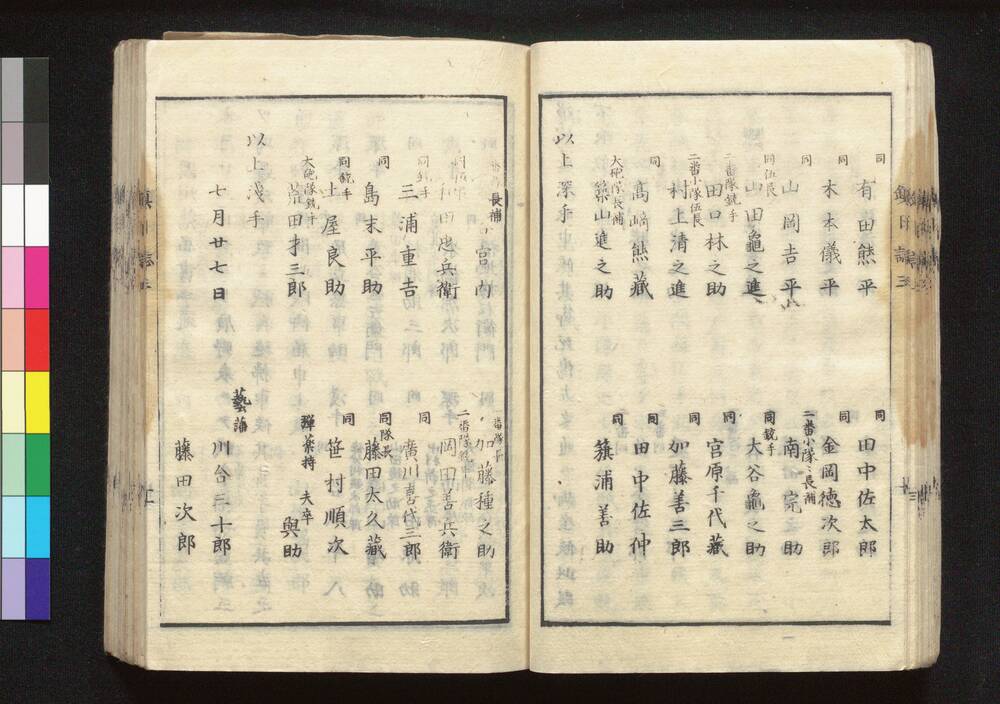 同 有田熊平 同 田中佐太郎
同 木本儀平 同 金岡徳次郎
同 山岡吉平 二番小隊々長補 南完之助
同伍長 山田龜之進 同銃手 大谷龜之助
二番隊銃手 田口林之助 同 宮原千代藏
二番小隊伍長 村上清之進 同 加藤善三郎
同 高﨑熊藏 同 田中佐仲
大砲隊長補 築山進之助 同 簱浦善助
以上深手
長補 宮内 一番隊長 加藤種之助
和田忠兵衛 二番隊 岡田善兵衛
同銃手 三浦重吉 同 廣川喜代三郎
同 島末平助 同隊長 藤田太久藏
同銃手 土屋良助 同 笹村順次
大砲隊銃手 荒田才三郎 弾薬持 夫卒 與助
以上浅手
七月廿七日 藝藩 川合三十郎
藤田次郎
鎮日誌三